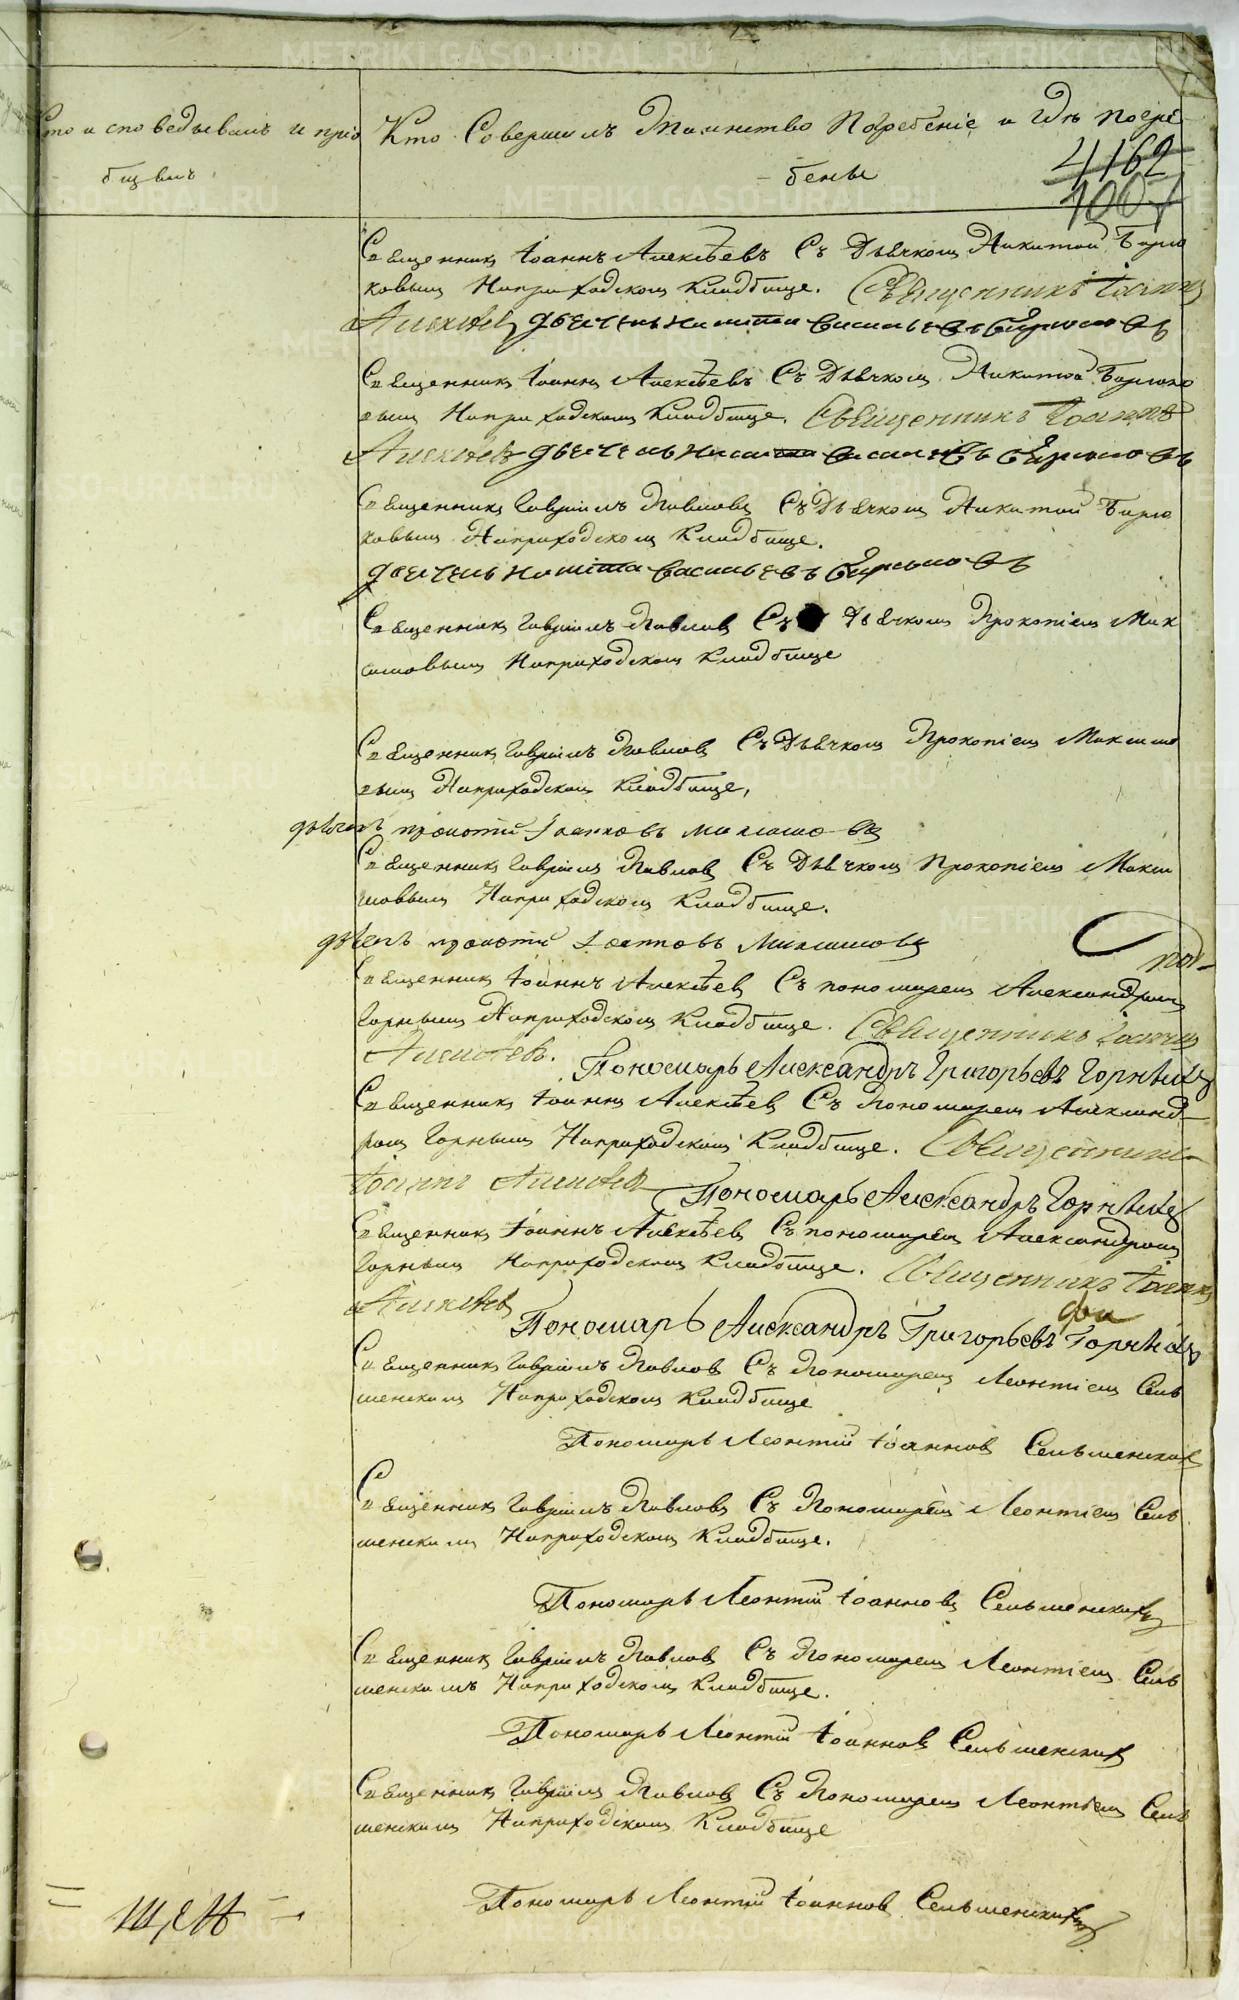 Кто исповедывалъ и приобщалъ
Кто Совершилъ таинство Погребеніе и Гдѣ погребены
4162
1007
Священникъ Іоаннъ Алексѣевъ Съ Дьячкомъ Никитой Бирюковымъ На приходскомъ Кладбище. Священникъ Іоаннъ
Алексѣевъ дьечекъ никита васильевъ бирюковъ
Священникъ Іоаннъ Алексѣевъ Съ Дьячкомъ Никитой Бирюковымъ На приходскомъ Кладбище. Священникъ Іоаннъ
Алексѣевъ дьечекъ никита васильевъ бирюковъ
Священникъ Гавріилъ Павловъ Съ Дьячкомъ Никитой Бирюковымъ На приходскомъ Кладбище.
дьечекъ никита васильевъ бирюковъ
Священникъ Гавріилъ Павловъ Съ Дьячкомъ Прокопіемъ Максимовымъ На приходскомъ Кладбище
Священникъ Гавріилъ Павловъ Съ Дьячкомъ Прокопіемъ Максимовымъ На приходскомъ Кладбище,
Священникъ Гавріилъ Павловъ Съ Дьячкомъ Прокопіемъ Максимовымъ На приходскомъ Кладбище.
Священникъ Іоаннъ Алексѣевъ Съ пономаремъ Александромъ
Горнымъ На приходскомъ Кладбище. Священникъ Іоаннъ
Алексѣевъ. Пономарь Александръ Григорьевъ Горныхъ
Священникъ Іоаннъ Алексѣевъ Съ Пономаремъ Александромъ Горнымъ На приходскомъ Кладбище. Священникъ
Іоаннъ Алексѣевъ Пономарь Александръ Горныхъ
Священникъ Іоаннъ Алексѣевъ Съ пономаремъ Александромъ
Горнымъ На приходскомъ Кладбище. Священникъ Іоаннъ
Алексѣевъ Пономарь Александръ Григорьевъ Горныхъ
Священникъ Гавріилъ Павловъ Съ Пономаремъ Леонтіемъ Сельменскимъ На приходскомъ Кладбище
Пономарь Леонтій Іоанновъ Сельменскихъ
Священникъ Гавріилъ Павловъ Съ Пономаремъ Леонтіемъ Сельменскимъ На приходскомъ Кладбище.
Пономарь Леонтій Іоанновъ Сельменскихъ
Священникъ Гавріилъ Павловъ Съ Пономаремъ Леонтіемъ Сельменскимъ На приходскомъ Кладбище.
Пономарь Леонтій Іоанновъ Сельменскихъ
Священникъ Гавріилъ Павловъ Съ Пономаремъ Леонтіемъ Сельменскимъ На приходскомъ Кладбище
Пономарь Леонтій Іоанновъ Сельменскихъ
METRIKI.GASO-URAL.RU